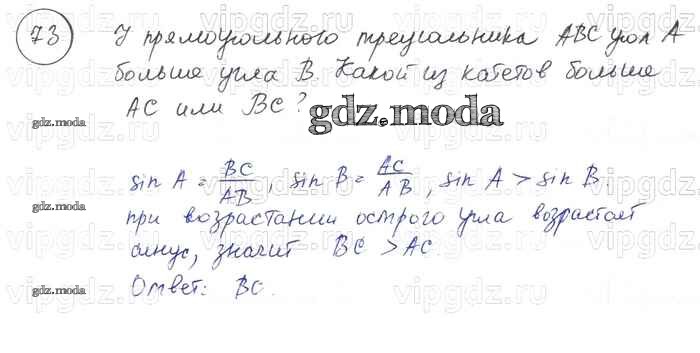 73 У прямоугольного треугольника ABC угол A
больше угла B. Какой из катетов больше
AC или BC?
gdz.moda
sin A = BC/AB, sin B = AC/AB, sin A > sin B,
при возрастании острого угла возрастает
синус, значит BC > AC.
Ответ: BC.
gdz.moda
gdz.moda
gdz.moda
vipgdz.ru